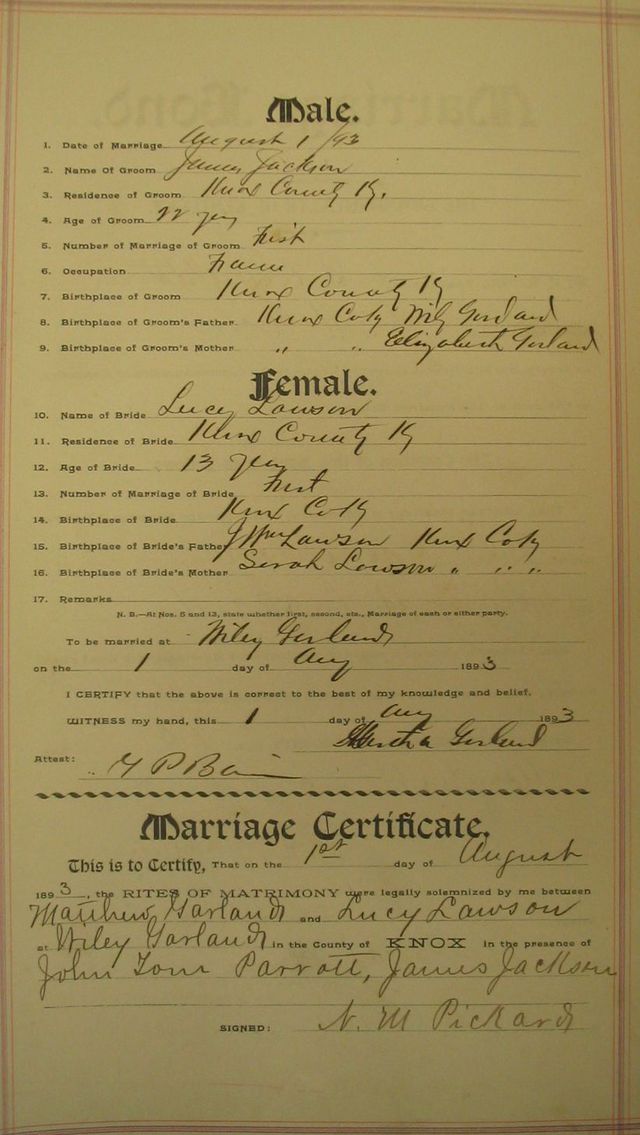 Male.
1. Date of Marriage August 1 /93
2. Name of Groom James Jackson
3. Residence of Groom Knox County Ky.
4. Age of Groom 22 yeas
5. Number of Marriage of Groom First
6. Occupation
7. Birthplace of Groom Knox County Ky
8. Birthplace of Groom's Father Knox Co Ky Wily Garland
9. Birthplace of Groom's Mother " " Elizabeth Garland
Female.
10. Name of Bride Lucy Lawson
11. Residence of Bride Knox County Ky
12. Age of Bride 13 yeas
13. Number of Marriage of Bride First
14. Birthplace of Bride Knox Co Ky
15. Birthplace of Bride's Father Lawson Knox Co Ky
16. Birthplace of Bride's Mother Sarah Lawson " " "
17. Remarks
N. B.—At Nos. 5 and 13, state whether first, second, etc., Marriage of each or either party.
To be married at Wiley Garlands
on the 1 day of Aug 1893
I CERTIFY that the above is correct to the best of my knowledge and belief.
WITNESS my hand, this 1 day of Aug 1893
Garland
Attest:
Marriage Certificate.
This is to Certify, That on the 1st day of August
1893, the RITES OF MATRIMONY were legally solemnized by me between
Matthew Garland and Lucy Lawson
at Wiley Garlands in the County of KNOX in the presence of
John Tom Parrott, James Jackson
SIGNED: N. M Pickard